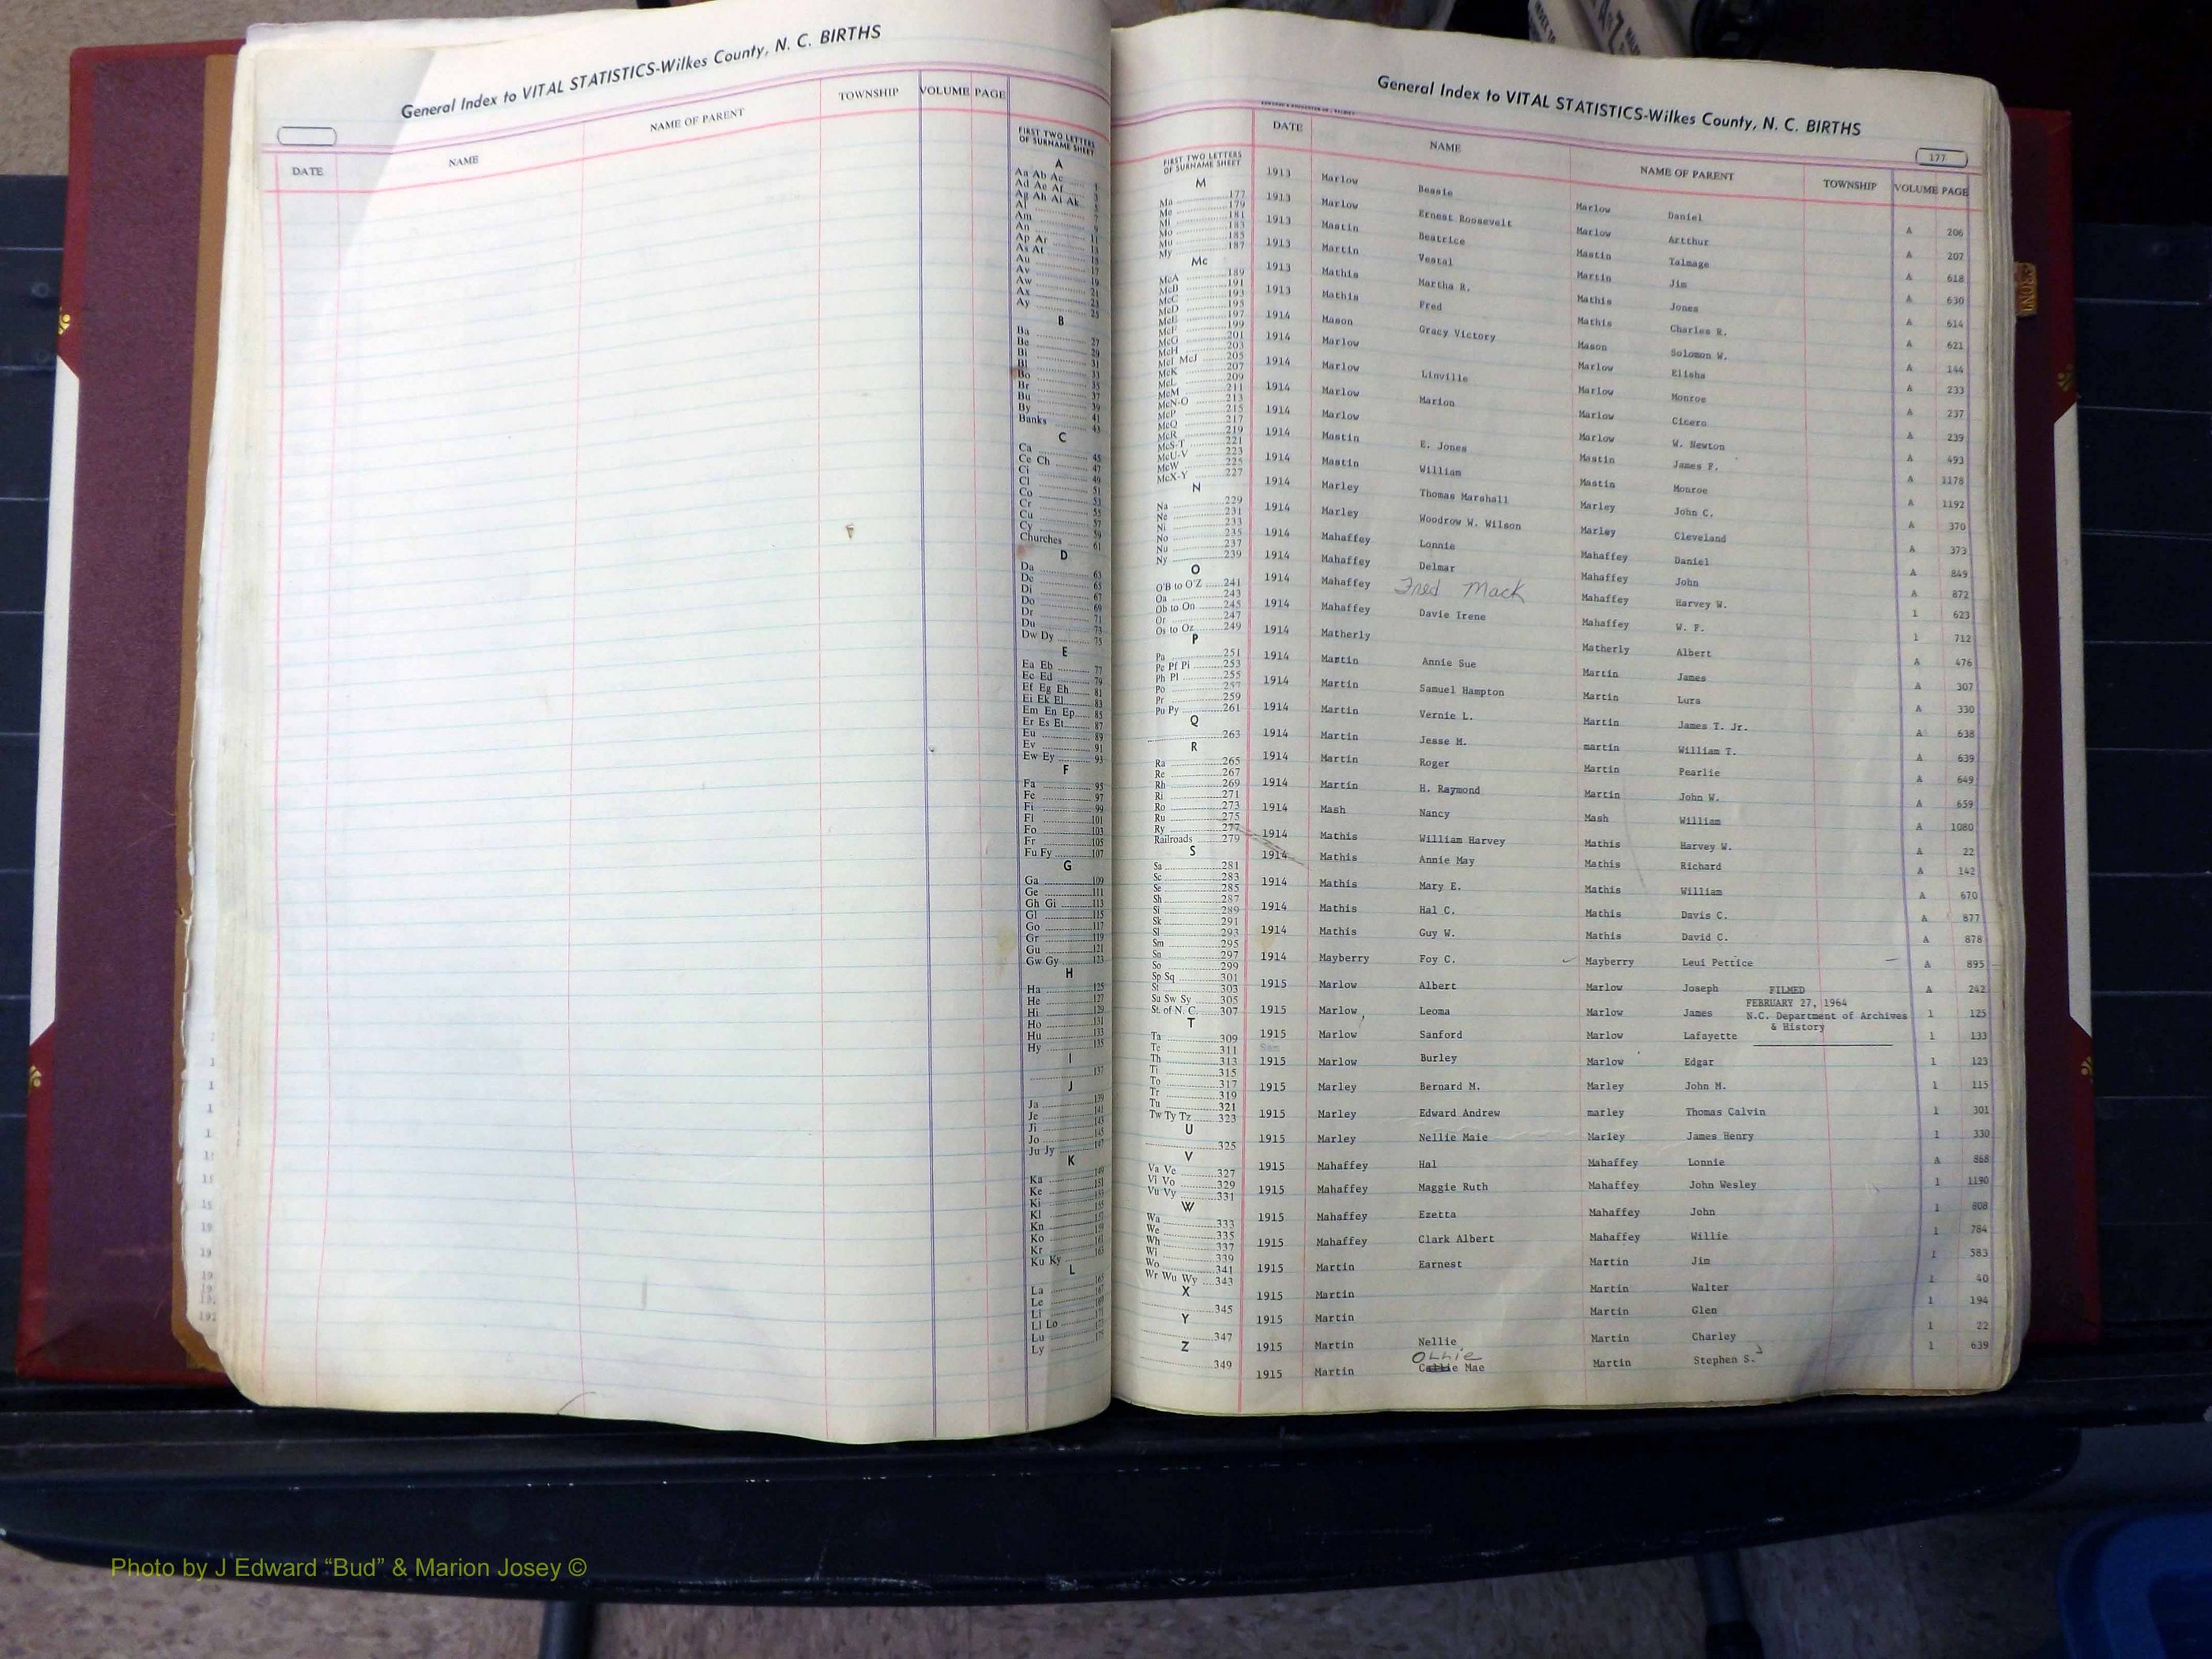 General Index to VITAL STATISTICS-Wilkes County, N. C. BIRTHS
DATE NAME NAME OF PARENT TOWNSHIP VOLUME PAGE
FIRST TWO LETTERS
OF SURNAME SHEET
A
Aa Ab Ac 1
Ad Ae Af 3
Ag Ah Ai Ak 5
Al 7
Am 9
An 11
Ap Ar 13
As At 15
Au 17
Av 19
Aw 21
Ax 23
Ay 25
B
Ba 27
Be 29
Bi 31
Bl 33
Bo 35
Br 37
Bu 39
By 41
Banks 43
C
Ca 45
Ce Ch 47
Ci 49
Cl 51
Co 53
Cr 55
Cu 57
Cy 59
Churches 61
D
Da 63
De 65
Di 67
Do 69
Dr 71
Du 73
Dw Dy 75
E
Ea Eb 77
Ec Ed 79
Ef Eg Eh 81
Ei Ek El 83
Em En Ep 85
Er Es Et 87
Eu 89
Ev 91
Ew Ey 93
F
Fa 95
Fe 97
Fi 99
Fl 101
Fo 103
Fr 105
Fu Fy 107
G
Ga 109
Ge 111
Gh Gi 113
Gl 115
Go 117
Gr 119
Gu 121
Gw Gy 123
H
Ha 125
He 127
Hi 129
Ho 131
Hu 133
Hy 135
I
137
J
Ja 139
Je 141
Ji 143
Jo 145
Ju Jy 147
K
Ka 149
Ke 151
Ki 153
Kl 155
Kn 157
Ko 159
Kr 161
Ku Ky 163
L
La 165
Le 167
Li 169
Ll Lo 171
Lu
Ly 175
General Index to VITAL STATISTICS-Wilkes County, N. C. BIRTHS
177
DATE NAME NAME OF PARENT TOWNSHIP VOLUME PAGE
FIRST TWO LETTERS
OF SURNAME SHEET
M
Ma 177
Me 179
Mi 181
Mo 183
Mu 185
My 187
Mc
McA 189
McB 191
McC 193
McD 195
McE 197
McF 199
McG 201
McH 203
McI McJ 205
McK 207
McL 209
McM 211
McN-O 213
McP 215
McQ 217
McR 219
McS-T 221
McU-V 223
McW 225
McX-Y 227
N
Na 229
Ne 231
Ni 233
No 235
Nu 237
Ny 239
O
O'B to O'Z 241
Oa 243
Ob to On 245
Or 247
Os to Oz 249
P
Pa 251
Pe Pf Pi 253
Ph Pl 255
Po 257
Pr 259
Pu Py 261
Q
263
R
Ra 265
Re 267
Rh 269
Ri 271
Ro 273
Ru 275
Ry 277
Railroads 279
S
Sa 281
Sc 283
Se 285
Sh 287
Si 289
Sk 291
Sl 293
Sm 295
Sn 297
So 299
Sp Sq 301
St 303
Su Sw Sy 305
St. of N. C. 307
T
Ta 309
Te 311
Th 313
Ti 315
To 317
Tr 319
Tu 321
Tw Ty Tz 323
U
325
V
Va Ve 327
Vi Vo 329
Vu Vy 331
W
Wa 333
We 335
Wh 337
Wi 339
Wo 341
Wr Wu Wy 343
X
345
Y
347
Z
349
1913 Marlow Bessie Marlow Daniel A 206
1913 Marlow Ernest Roosevelt Marlow Artthur A 207
1913 Mastin Beatrice Mastin Talmage A 618
1913 Martin Vestal Martin Jim A 630
1913 Mathis Martha R. Mathis Jones A 614
1913 Mathis Fred Mathis Charles R. A 621
1914 Mason Gracy Victory Mason Solomon W. A 144
1914 Marlow Marlow Elisha A 233
1914 Marlow Linville Marlow Monroe A 237
1914 Marlow Marion Marlow Cicero A 239
1914 Marlow Marlow W. Newton A 493
1914 Mastin E. Jones Mastin James F. A 1178
1914 Mastin William Mastin Monroe A 1192
1914 Marley Thomas Marshall Marley John C. A 370
1914 Marley Woodrow W. Wilson Marley Cleveland A 373
1914 Mahaffey Lonnie Mahaffey Daniel A 849
1914 Mahaffey Delmar Mahaffey John A 872
1914 Mahaffey Fred Mack Mahaffey Harvey W. 1 623
1914 Mahaffey Davie Irene Mahaffey W. F. 1 712
1914 Matherly Matherly Albert A 476
1914 Martin Annie Sue Martin James A 307
1914 Martin Samuel Hampton Martin Lura A 330
1914 Martin Vernie L. Martin James T. Jr. A 638
1914 Martin Jesse M. martin William T. A 639
1914 Martin Roger Martin Pearlie A 649
1914 Martin H. Raymond Martin John W. A 659
1914 Mash Nancy Mash William A 1080
1914 Mathis William Harvey Mathis Harvey W. A 22
1914 Mathis Annie May Mathis Richard A 142
1914 Mathis Mary E. Mathis William A 670
1914 Mathis Hal C. Mathis Davis C. A 877
1914 Mathis Guy W. Mathis David C. A 878
1914 Mayberry Foy C. Mayberry Leui Pettice A 895
1915 Marlow Albert Marlow Joseph A 242
FILMED
FEBRUARY 27, 1964
N.C. Department of Archives
& History
1915 Marlow, Leoma Marlow James 1 125
1915 Marlow Sanford Marlow Lafayette 1 133
1915 Marlow Burley Marlow Edgar 1 123
1915 Marley Bernard M. Marley John M. 1 115
1915 Marley Edward Andrew marley Thomas Calvin 1 301
1915 Marley Nellie Maie Marley James Henry 1 330
1915 Mahaffey Hal Mahaffey Lonnie A 868
1915 Mahaffey Maggie Ruth Mahaffey John Wesley 1 1190
1915 Mahaffey Ezetta Mahaffey John 1 808
1915 Mahaffey Clark Albert Mahaffey Willie 1 784
1915 Martin Earnest Martin Jim 1 583
1915 Martin Martin Walter 1 40
1915 Martin Martin Glen 1 194
1915 Martin Nellie Martin Charley 1 22
Ollie
1915 Martin Callie Mae Martin Stephen S. 1 639
Photo by J Edward “Bud” & Marion Josey ©